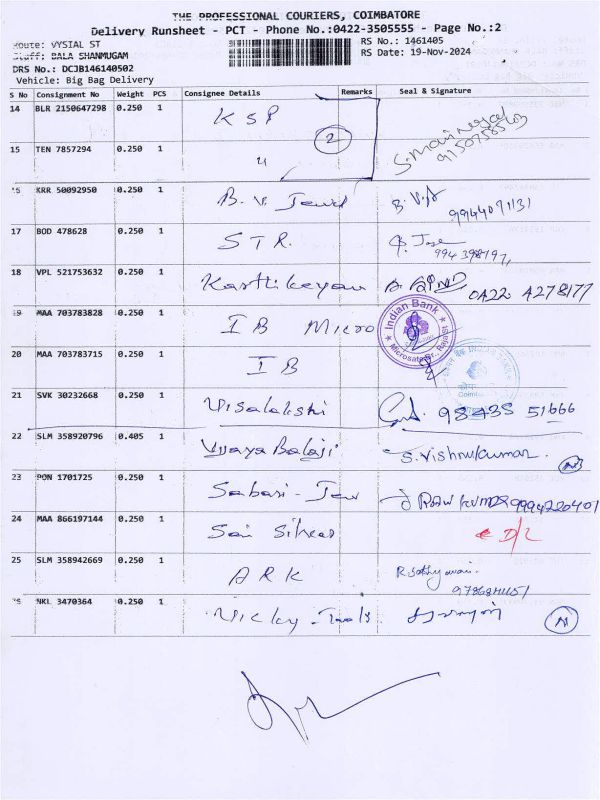 THE PROFESSIONAL COURIERS, COIMBATORE
Delivery Runsheet - PCT - Phone No.:0422-3505555 - Page No.:2
Route: VYSIAL ST
RS No.: 1461405
Staff: BALA SHANMUGAM
RS Date: 19-Nov-2024
DRS No.: DCJB146140502
Vehicle: Big Bag Delivery
S No Consignment No Weight PCS Consignee Details Remarks Seal & Signature
14 BLR 2150647298 0.250 1 KSP
2
15 TEN 7857294 0.250 1 "
16 KRR 50092950 0.250 1 B.V. Jewel B. V.
17 BOD 478628 0.250 1 STR. Jose
18 VPL 521753632 0.250 1 Karthikeyan 0422 4278177
19 MAA 703783828 0.250 1 IB Micro Indian Bank
20 MAA 703783715 0.250 1 IB
21 SVK 30232668 0.250 1 Visalakshi 98435 51666
22 SLM 358920796 0.405 1 Vijaya Balaji S. Vishnukumar.
23 PON 1701725 0.250 1 Sabari - Jew 9994220401
24 MAA 866197144 0.250 1 Sai Silver D/L
25 SLM 358942669 0.250 1 ARK
26 NKL 3470364 0.250 1 Vicky - Tools
N